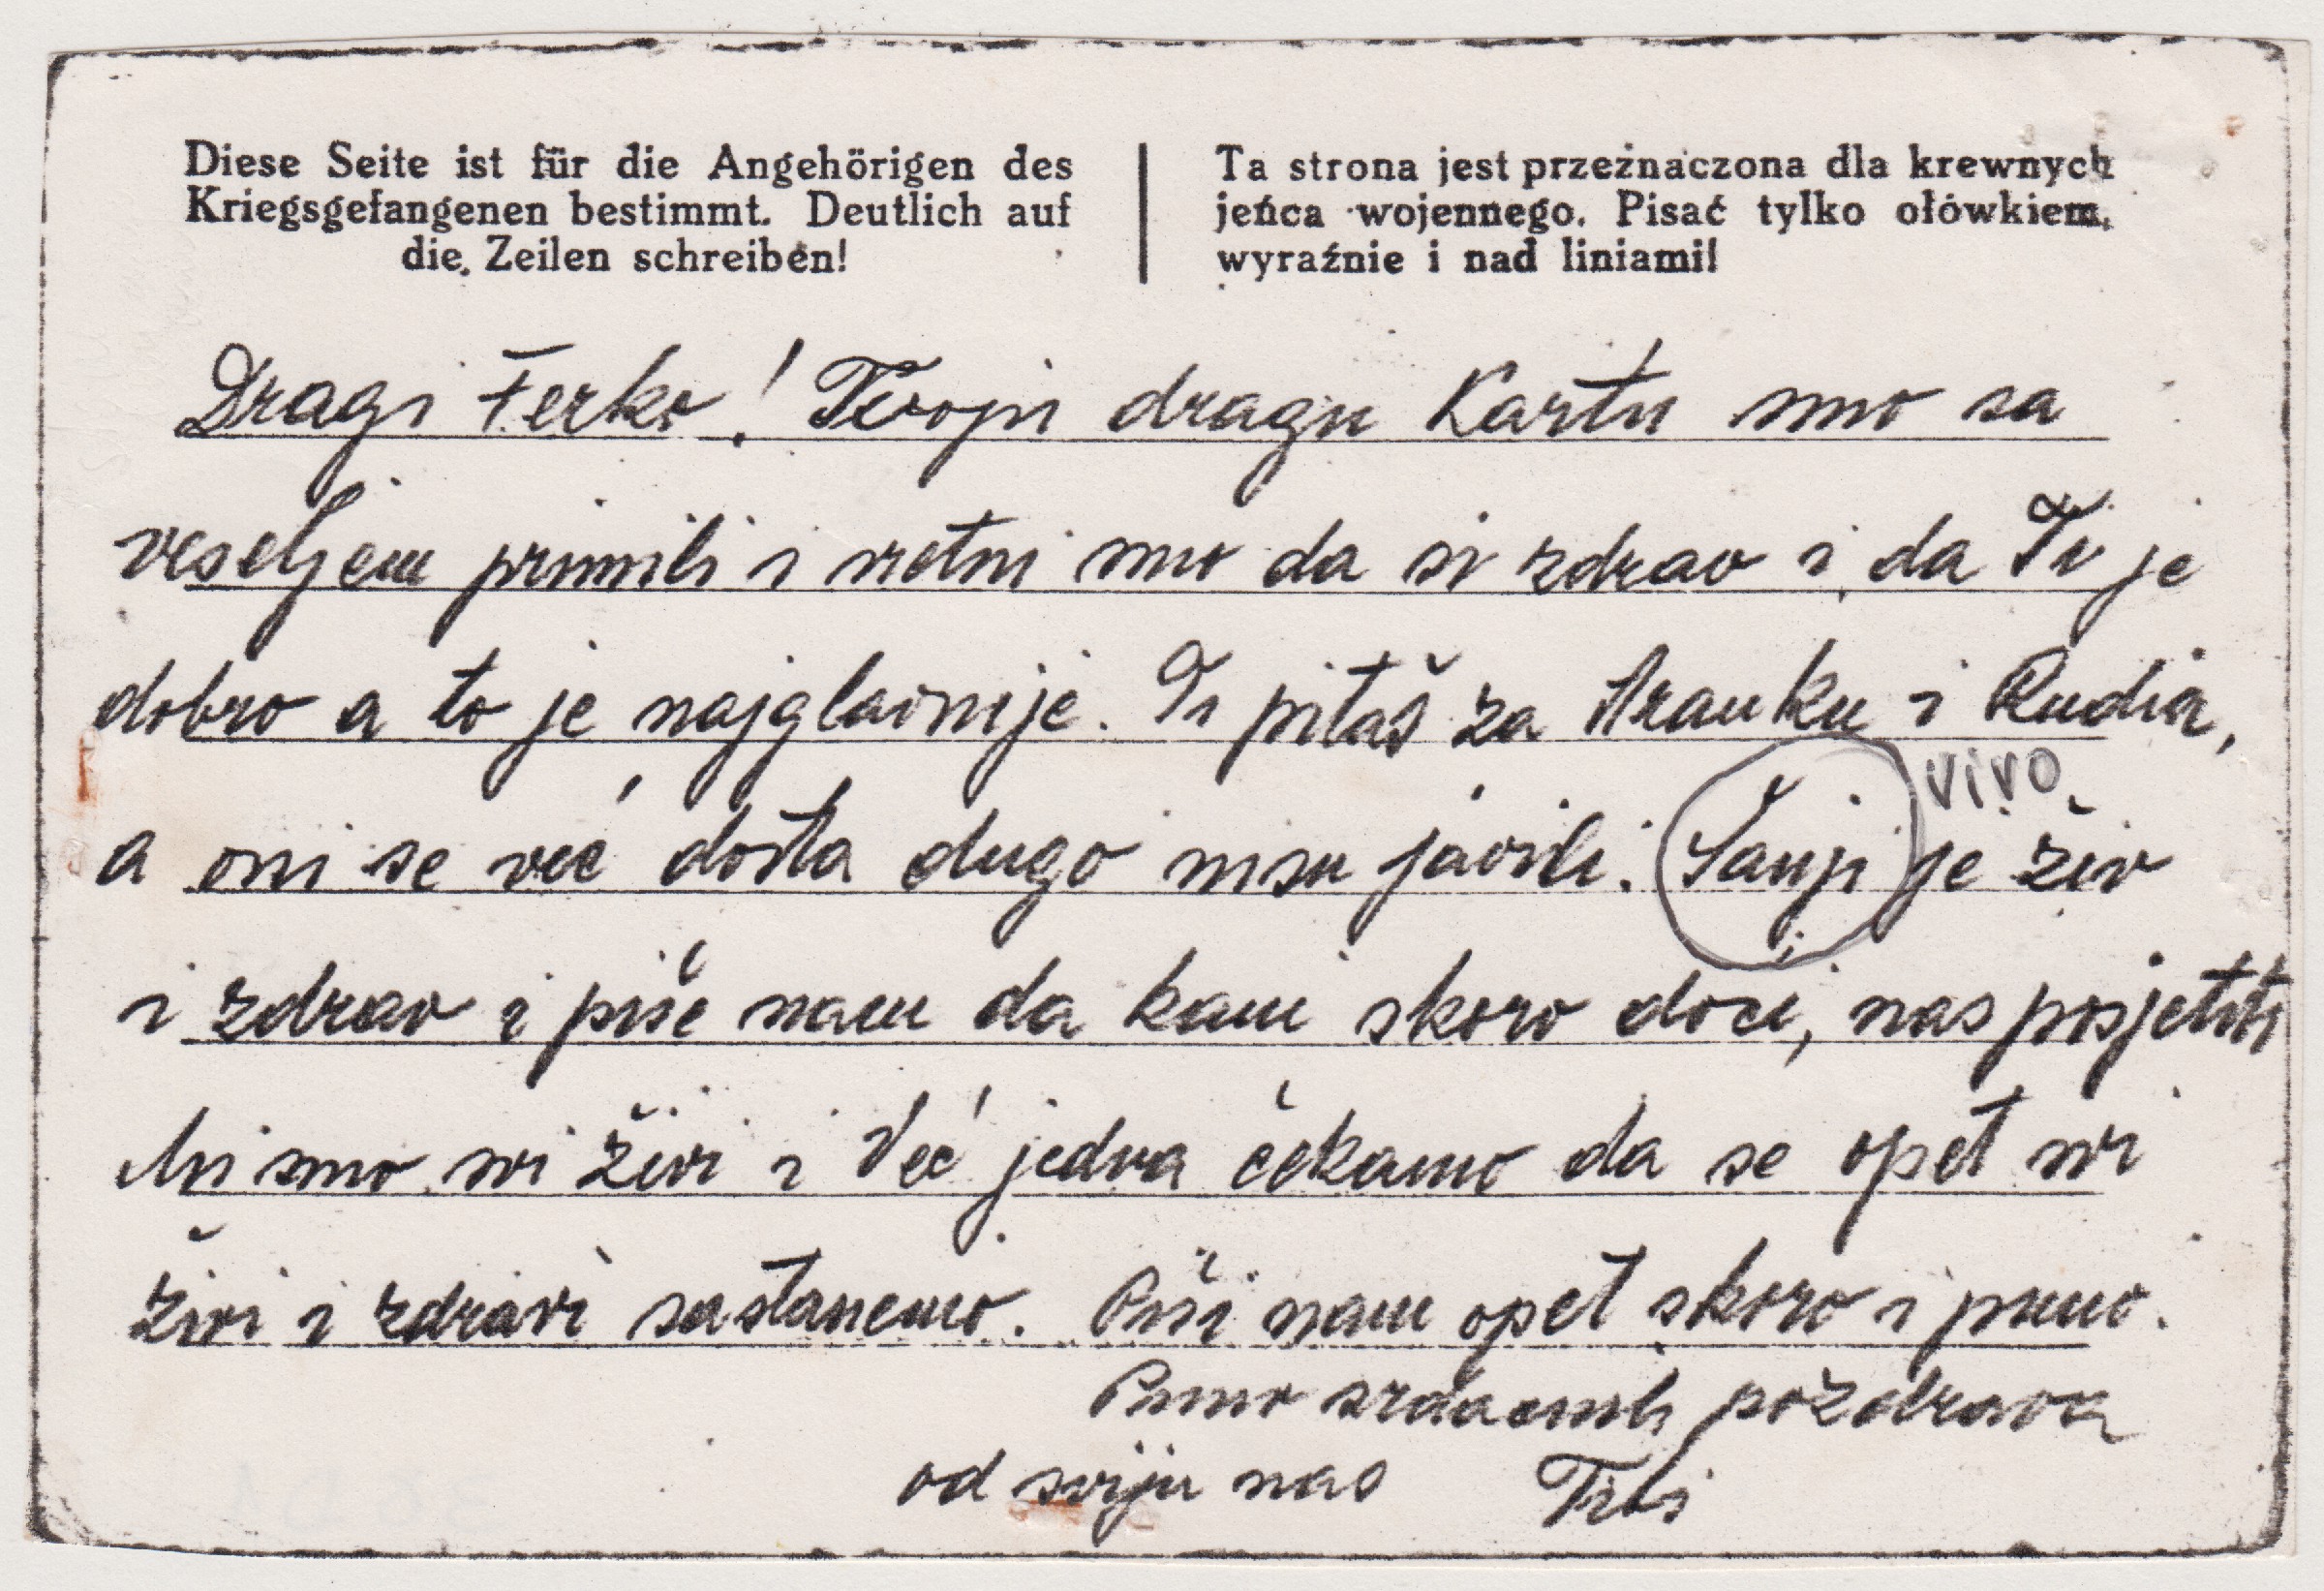 Diese Seite ist für die Angehörigen des
Kriegsgefangenen bestimmt. Deutlich auf
die Zeilen schreiben!
Ta strona jest przeznaczona dla krewnych
jeńca wojennego. Pisać tylko ołówkiem,
wyraźnie i nad liniami!
Dragi Ferko! Tvoju dragu Kartu smo sa
veseljem primili i sretni smo da si zdrav i da Ti je
dobro a to je najglavnije. Ti pitaš za Aranku i Rudia,
a oni se već dosta dugo nisu javili. Šanji je živ
vivo
i zdrav i piše nam da kani skoro doći, nas posjetiti
Mi smo svi živi i već jedva čekamo da se opet svi
živi i zdravi sastanemo. Piši nam opet skoro i puno.
Puno srdačnih pozdrava
od sviju nas